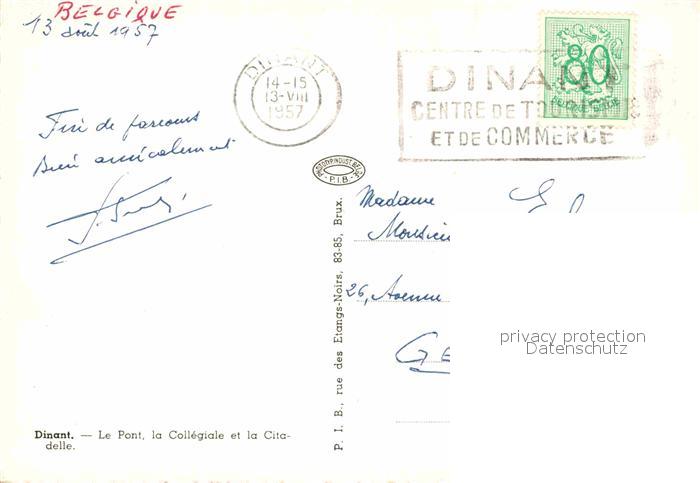 BELGIQUE
13 août 1957
DINANT
14-15
13-VIII
1957
DINANT
CENTRE DE TOURISME
ET DE COMMERCE
80
Fin de parcours
Bien amicalement
PHOTOTYP. INDUST. BELGE
P.I.B.
Madame
Monsieur
26, Avenue
GE
privacy protection
Datenschutz
P. I. B., rue des Etangs-Noirs, 83-85, Brux.
Dinant. — Le Pont, la Collégiale et la Cita-
delle.